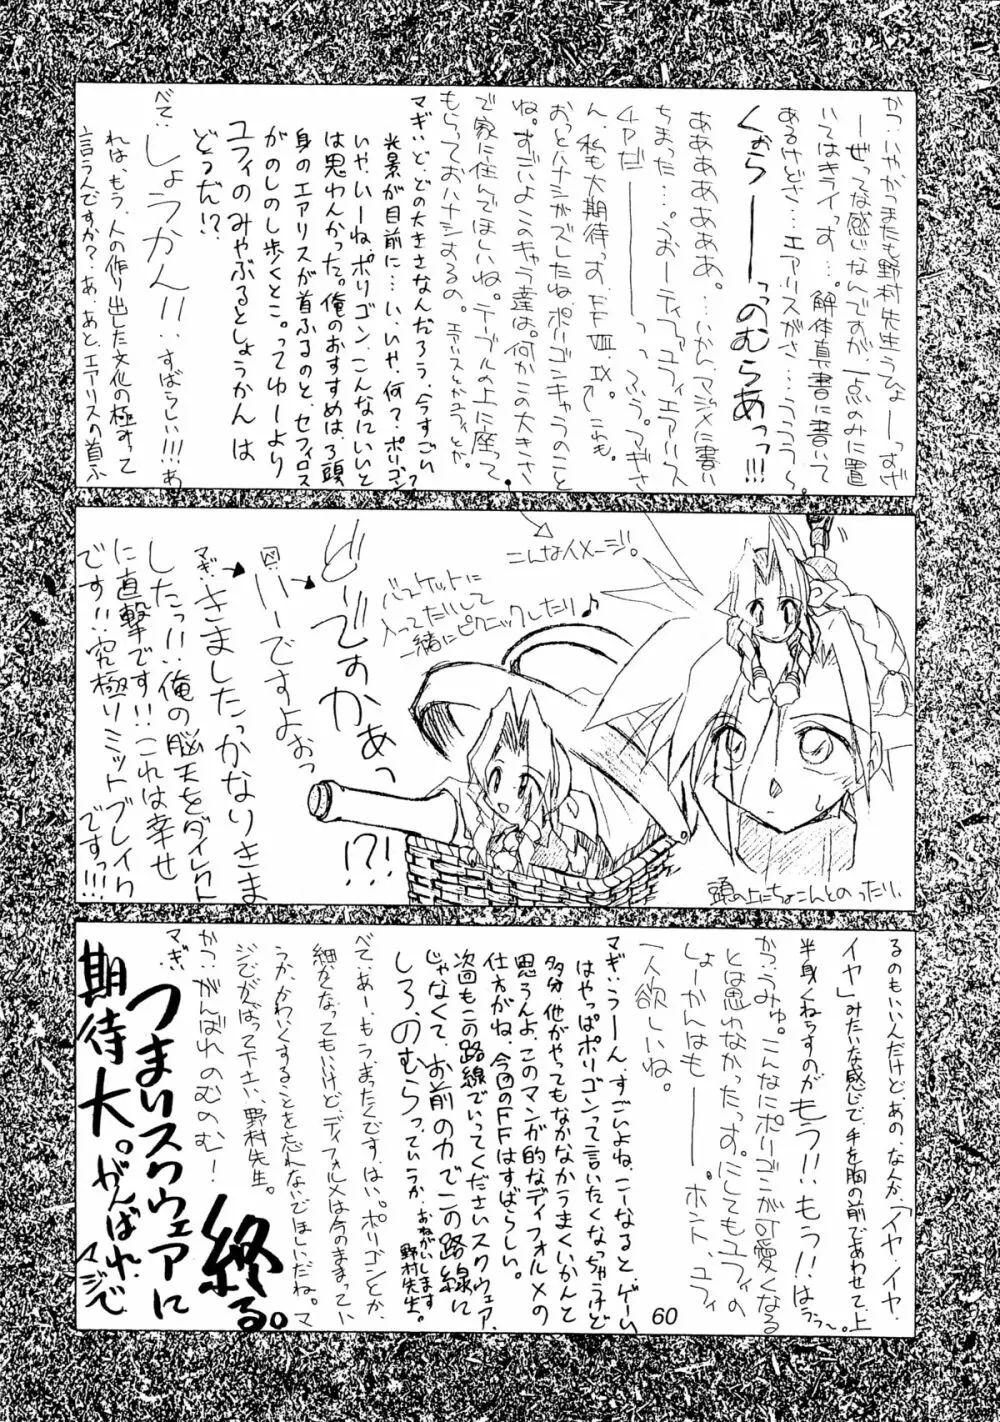 かつ:いやかつまたも野村先生うひょーっすぜ
ーぜってな感じなんですが、一点のみに置
いてはキライっす…。解体真書に書いて
あるけどさ…エアリスがさ…うううう〜。
くぉらーーーっのむらあっっ!!!
ああああああ。…いかん、マジメに書い
ちまった…。うおーティファユフィエアリス
チァだーーーーーっっ、ふう。マギさ
ん、私も大期待っす、FFⅧ、Ⅸ←これも。
おっとハナシがズレたね。ポリゴンキャラのこと
ね。すごいよこのキャラ達は。何かこの大きさ
で家に住んでほしいね。テーブルの上に座って
もらっておハナシするの。エアリスとかユフィとか。
マギ:ど、どの大きさなんだろう、今すごい
光景が目前に…い、いや、何?ポリゴン?
いや、いーね、ポリゴン、こんなにいいと
は思わんかった。俺のおすすめは、3頭
身のエアリスが首ふるのと、セフィロス
がのしのし歩くとこ。ってゆーより
ユフィのみやぶるとしょうかんは
どうだ!?
べて:しょうかん!!、すばらしい!!!あ
れは、もう、人の作り出した文化の極すって
言うんですか?あ、あと、エアリスの首ふ
こんなイメージ。
バスケットに
入ってたりして
一緒にピクニックしたり♪
頭の上にちょこんとのったり
ど、どですかあっ
!?!
いーですよおっ
マギ:きましたっかなりきま
したっ!!、俺の脳天をダイレクト
に直撃です!!これは幸せ
です!!究極リミットブレイク
ですっ!!!
るのもいい人だけど、あの、なんか「イヤ、イヤ、
イヤ」みたいな感じで、手を胸の前であわせて上
半身くねらすのがもう!!もう!!はぅぅ〜。
かつ:うみゅ。こんなにポリゴンが可愛くなる
とは思わなかったっす。にしてもユフィの
しょーかんはもーーー。ホント、ユフィ
一人欲しいね。
マギ:うーん、すごいよね、こーなると、ゲーム
はやっぱポリゴンって言いたくなっちゃうけど
多分、他がやってもなかなかうまくいかんと
思うんよ、このマンガ的なディフォルメの
仕方がね、今回のFFはすばらしい。
次回もこの路線でいってくださいスクウェア、
じゃなくて、お前の力でこの路線に
しろ、のむらっていうか、おねがいします
野村先生。
べて:あー、もう、まったくです、はい。ポリゴンとか、
細かくなってもいいけどディフォルメは今のままってい
うか、かわいくすることを忘れないでほしいだね。マ
ジでがんばって下さい、野村先生。
かつ:がんばれのむのむ!
マギ:
つまりスクウェアに
期待大。がんばれ、マジで
終る。
60